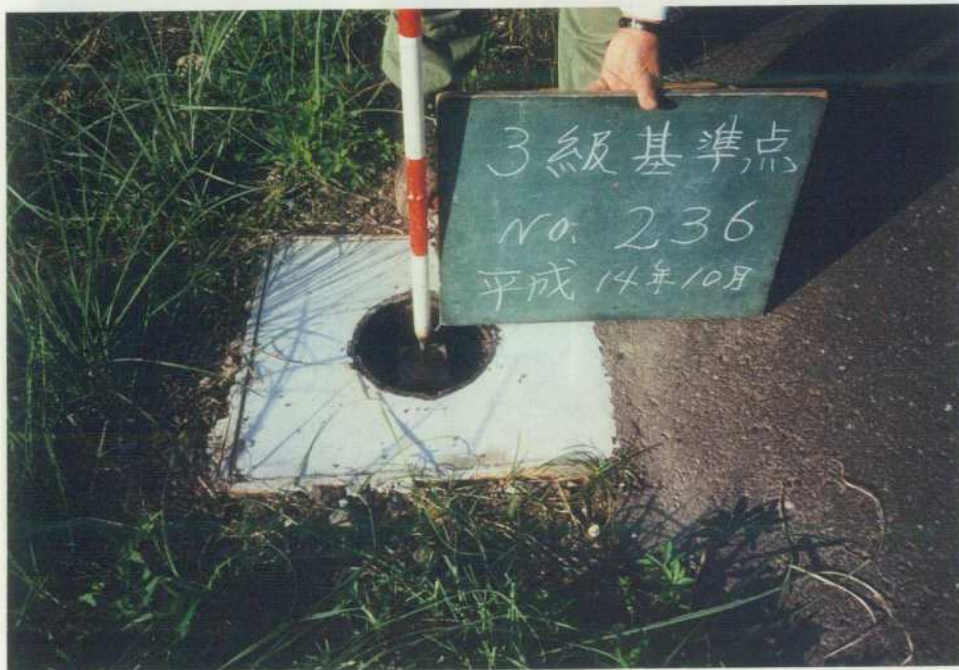 3級基準点
No. 236
平成14年10月